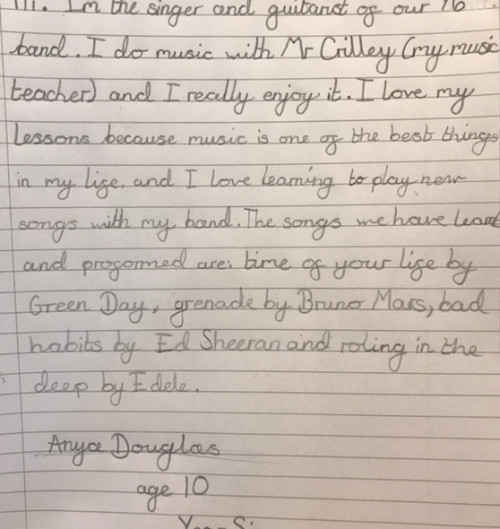 I'm the singer and guitarist of our
band. I do music with Mr Crilley (my music
teacher) and I really enjoy it. I love my
lessons because music is one of the best things
in my life. and I love learning to play new
songs with my band. The songs we have learnt
and progormed are: time of your life by
Green Day, grenade by Bruno Mars, bad
habits by Ed Sheeran and roling in the
deep by Edele.
Anya Douglas
age 10